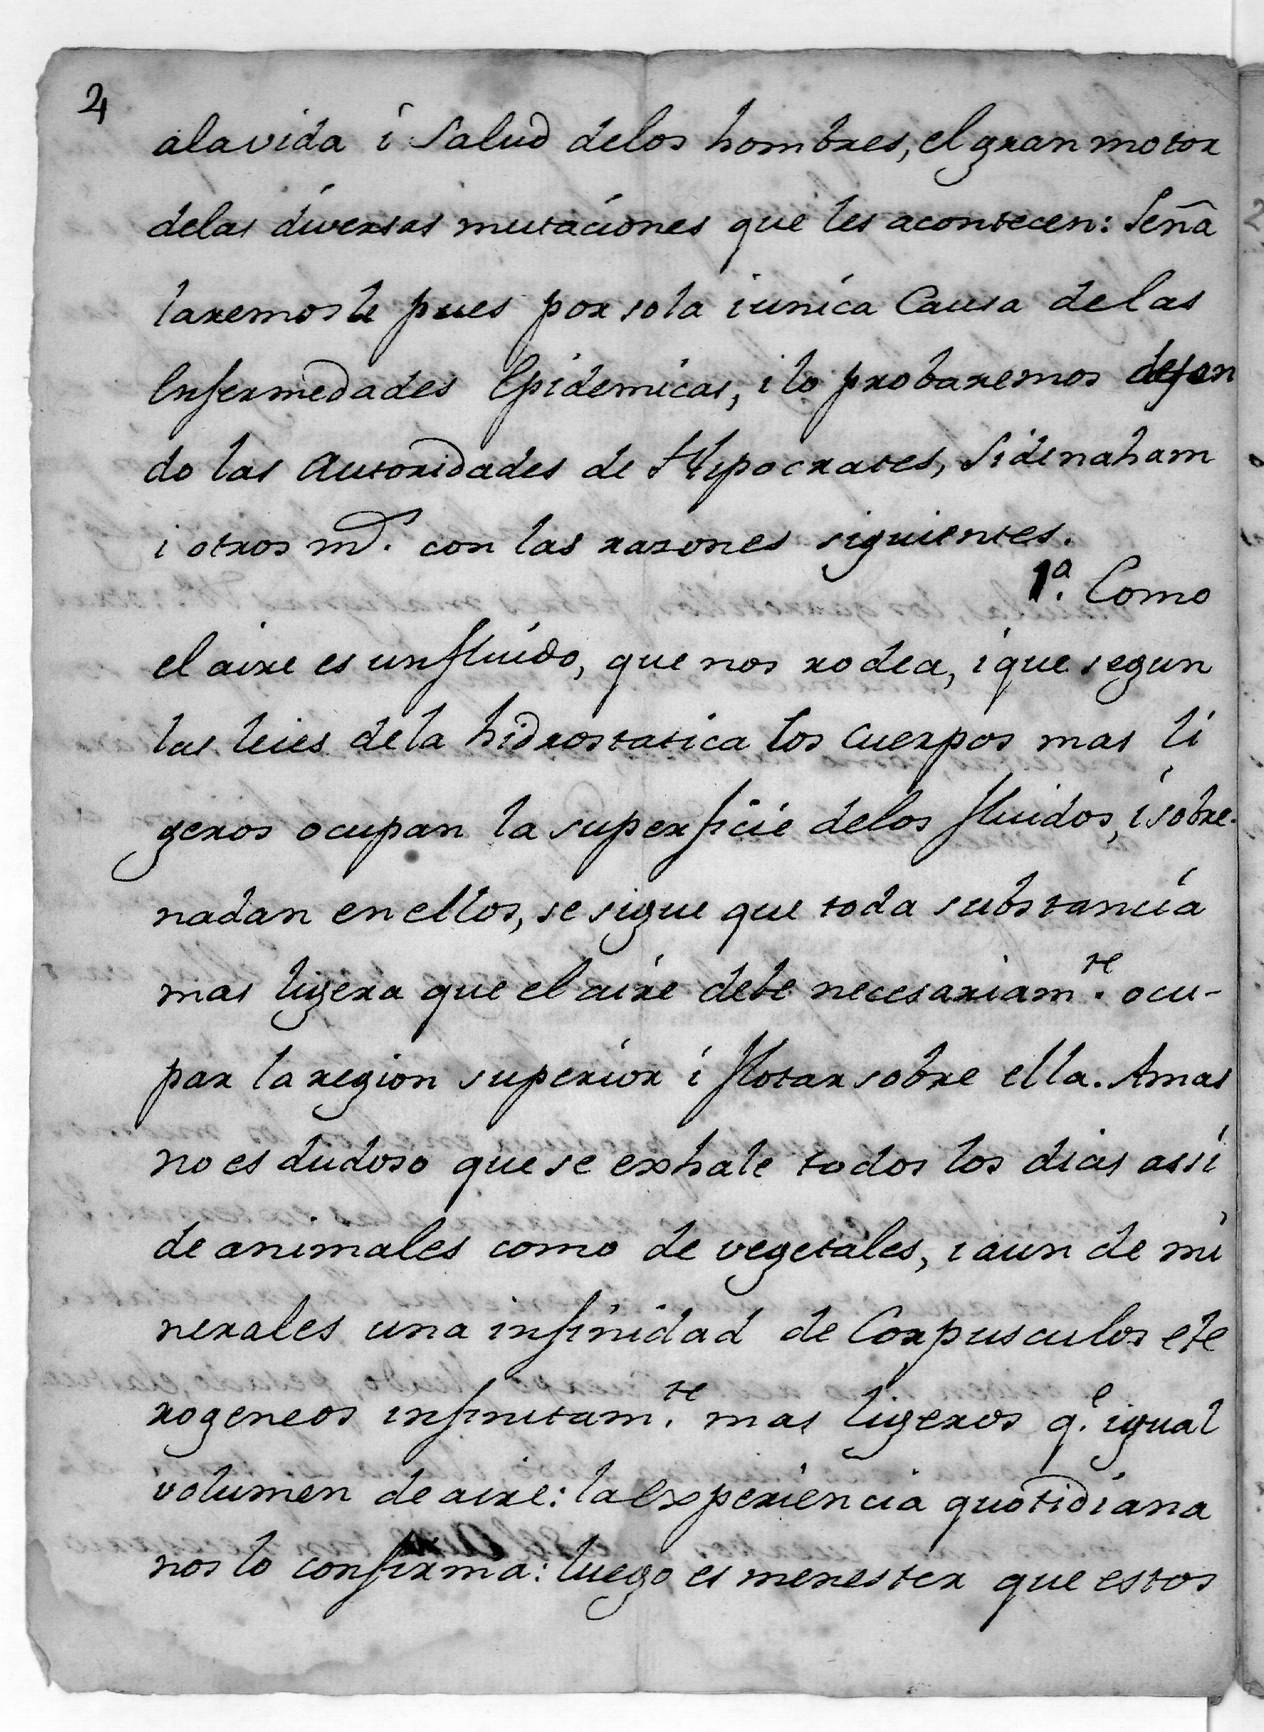 24
alavida i Salud delos hombres, el gran motor
delas diversas mutaciones que les acontecen: Seña
laremosle pues por sola i unica Causa de las
Enfermedades Epidemicas, i lo probaremos dejan
do las Autoridades de Hipocrates, Sidenaham
i otros m.d con las razones siguientes.
1.a Como
el aire es un fluido, que nos rodea, i que segun
las leies dela hidrostatica los Cuerpos mas li
geros ocupan la superficie delos fluidos, i sobre-
nadan en ellos, se sigue que toda substancia
mas ligera que el aire debe necesariam.te ocu-
par la region superior i flotar sobre ella. Amas
no es dudoso que se exhale todos los dias assi
de animales como de vegetales, i aun de mi
nerales una infinidad de Corpusculos ete
rogeneos infinitam.te mas ligeros q.e igual
volumen de aire: la experiencia quotidiana
nos lo confirma: luego es menester que estos